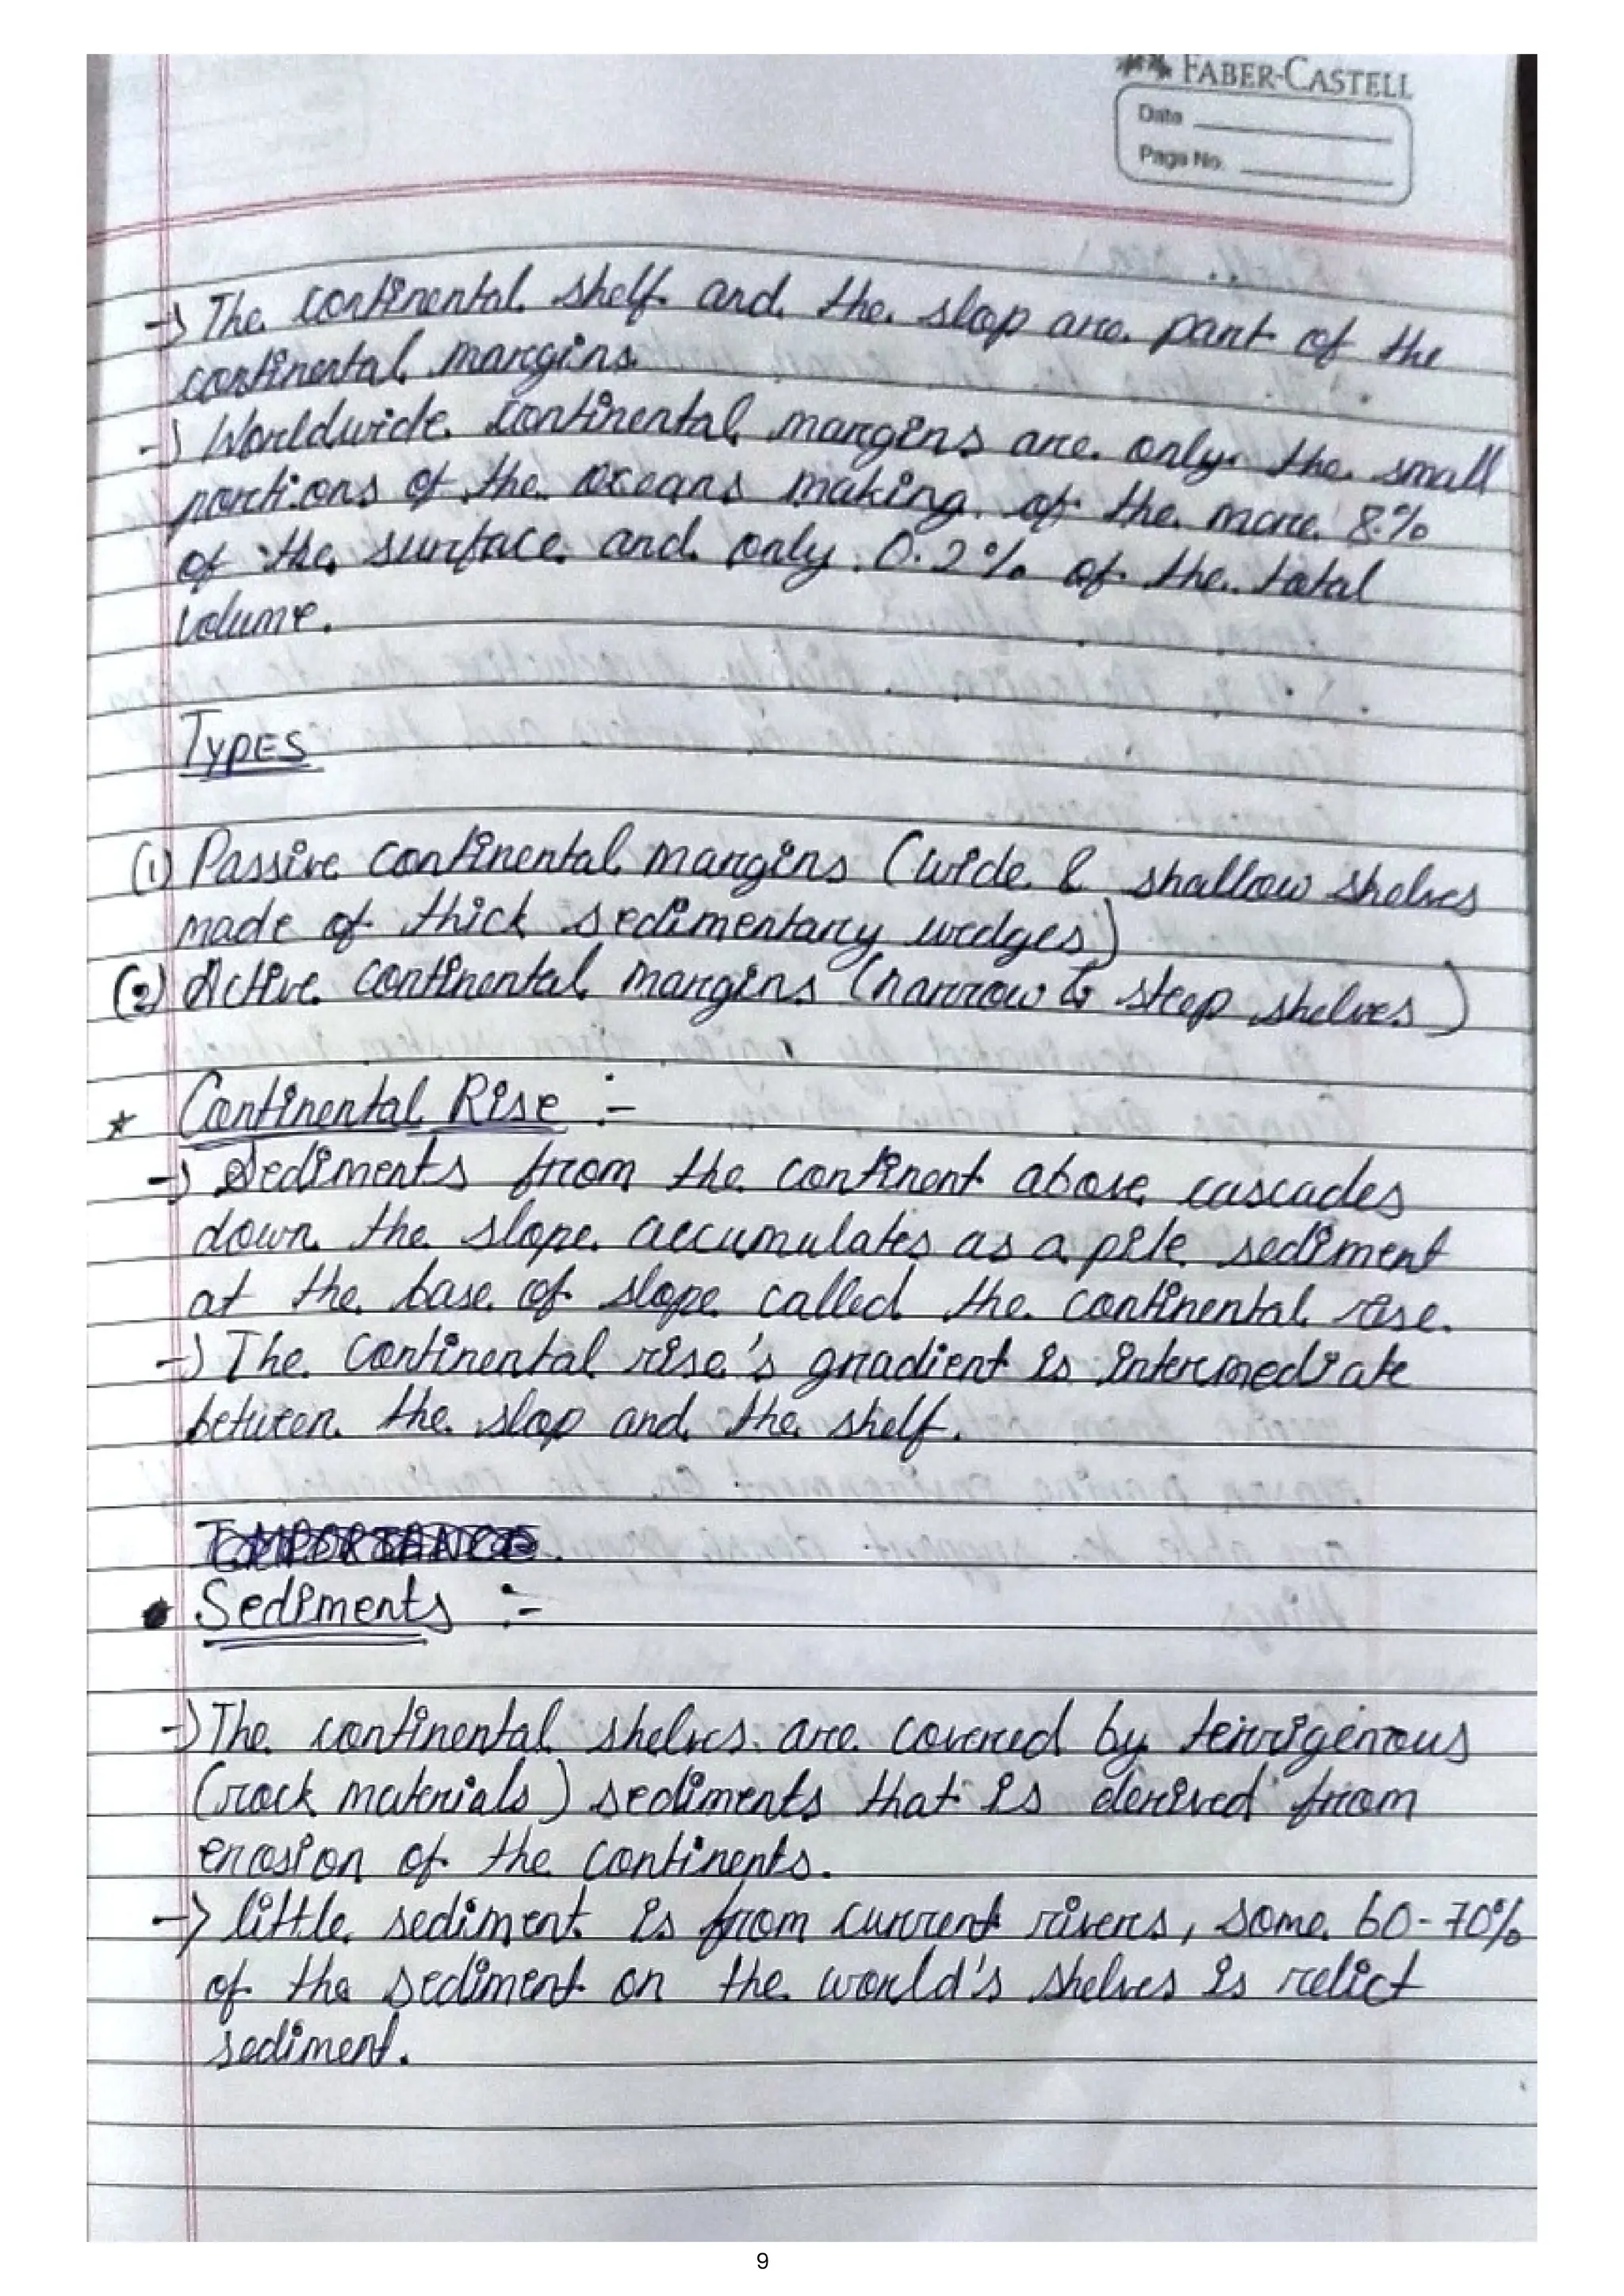 FABER-CASTELL
Date
Page No.
-> The continental shelf and the slop are part of the
continental margins.
-> Worldwide continental margins are only the small
portions of the oceans making of the more 8%
of the surface and only 0.2% of the total
volume.
TYPES
(1) Passive continental margins (wide & shallow shelves
made of thick sedimentary wedges)
(2) Active continental margins (narrow & steep shelves)
* Continental Rise :-
-> Sediments from the continent above cascades
down the slope accumulates as a pile sediment
at the base of slope called the continental rise.
-> The Continental rise's gradient is intermediate
between the slop and the shelf.
• Sediments :-
-> The continental shelves are covered by terrigenous
(rock materials) sediments that is derived from
erosion of the continents.
-> little sediment is from current rivers, some 60-70%
of the sediment on the world's shelves is relict
sediment.
9